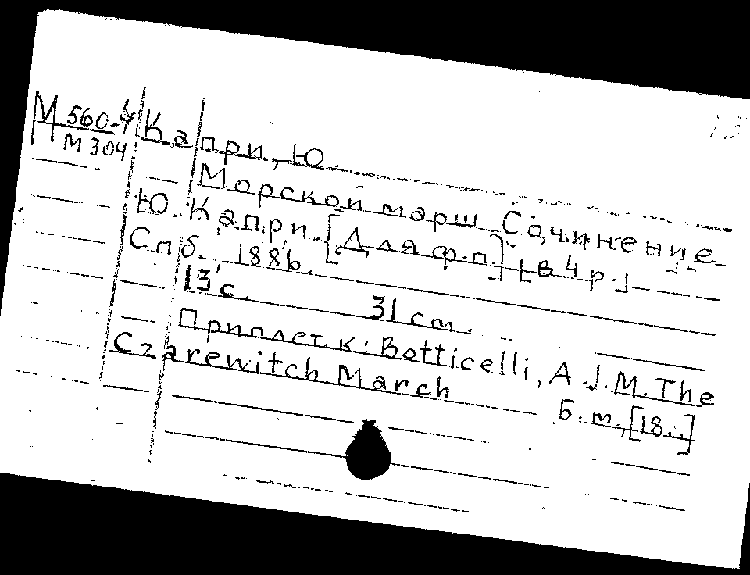 М 560-4
М 304
Капри, Ю.
Морской марш. Сочинение
Ю. Капри. [Для ф.п.] [в 4 р.]
Спб. 1886.
13 с. 31 см.
Приплет к: Botticelli, A. J. M. The
Czarewitch March
Б. м., [18..]